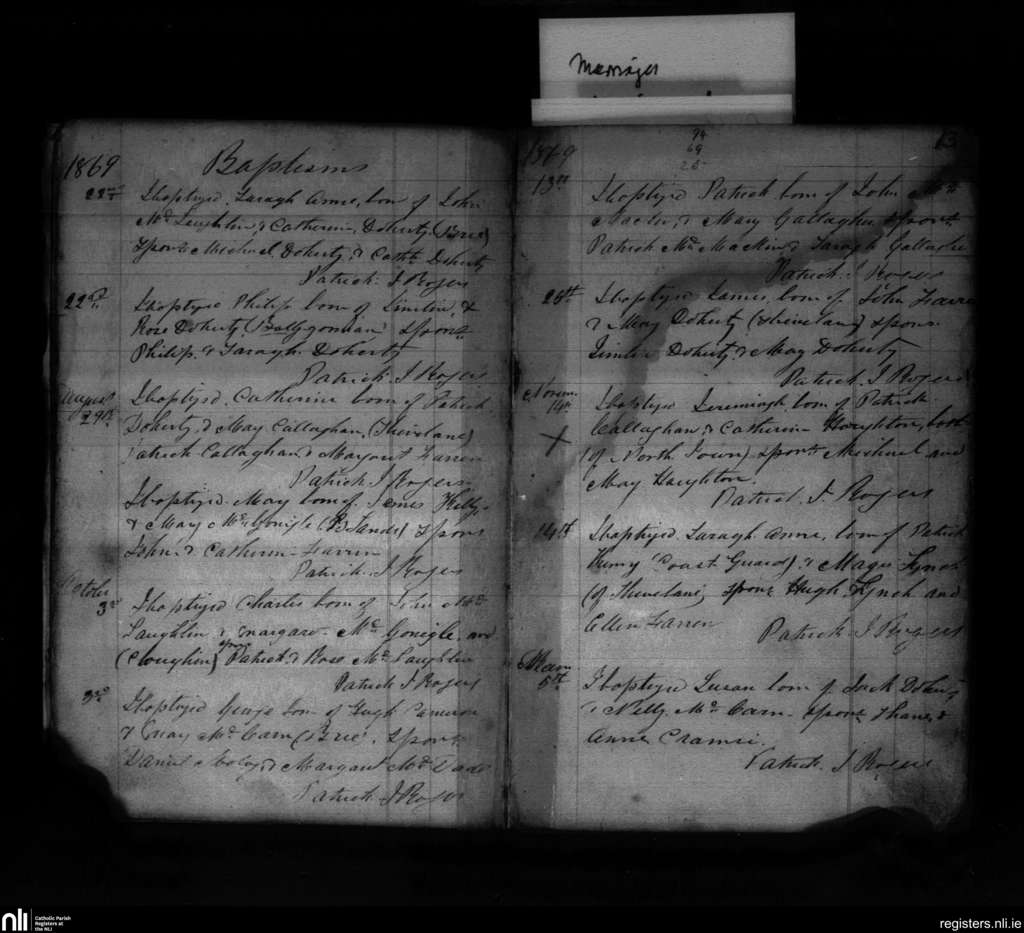 Marriages
1869 Baptisms
22nd I baptised Saragh Anne, born of John
Mc Laughlin, & Catherine Doherty (Bree)
Spons Michael Doherty, & Cathe Doherty
Patrick J Rogers
22nd I baptysd Philip born of &
Rose Doherty (Ballygorman) Spons
Philip & Saragh Doherty
Patrick J Rogers
August 29th I baptysd Catherine born of Patrick
Doherty, & May Callaghan,
Patrick Callaghan & Margaret Farren
Patrick J Rogers
I baptysd May born of James Kelly
& Mary Mc Gonigle Spons
John & Catherine Farren
Patrick J Rogers
October 3rd I baptysd Charles born of John Mc
Laughlin & Margaret Mc Gonigle and
(Cloughin) spons Patrick & Rose Mc Laughlin
Patrick J Rogers
3rd I baptysd George born of Hugh Cameron
& May Mc Cann (Bree). Spons
Daniel & Margaret Mc Dade
Patrick J Rogers
94
69
25
13
1869
13th I baptysd Patrick born of John Mc
& Mary Gallagher Spons
Patrick Mc Macken & Saragh Gallagher
Patrick J Rogers
28th I baptysd James, born of John Farren
& May Doherty Spons
Doherty & May Doherty
Patrick J Rogers
Novem 14th I baptysd Jeremiagh, born of Patrick
Callaghan & Catherine Houghton, both
(of North Town) Spons Michael and
May Haughton
Patrick J Rogers
14th I baptysd Saragh Anne, born of Patrick
Henry (Coast Guard) & Magie Lynch
Spons Hugh Lynch and
Ellen Farren
Patrick J Rogers
5th I baptysd Susan born of Jack Doherty
& Nelly Mc Cann. Spons &
Anne
Patrick J Rogers
nli
Catholic Parish
Registers at
the NLI
registers.nli.ie